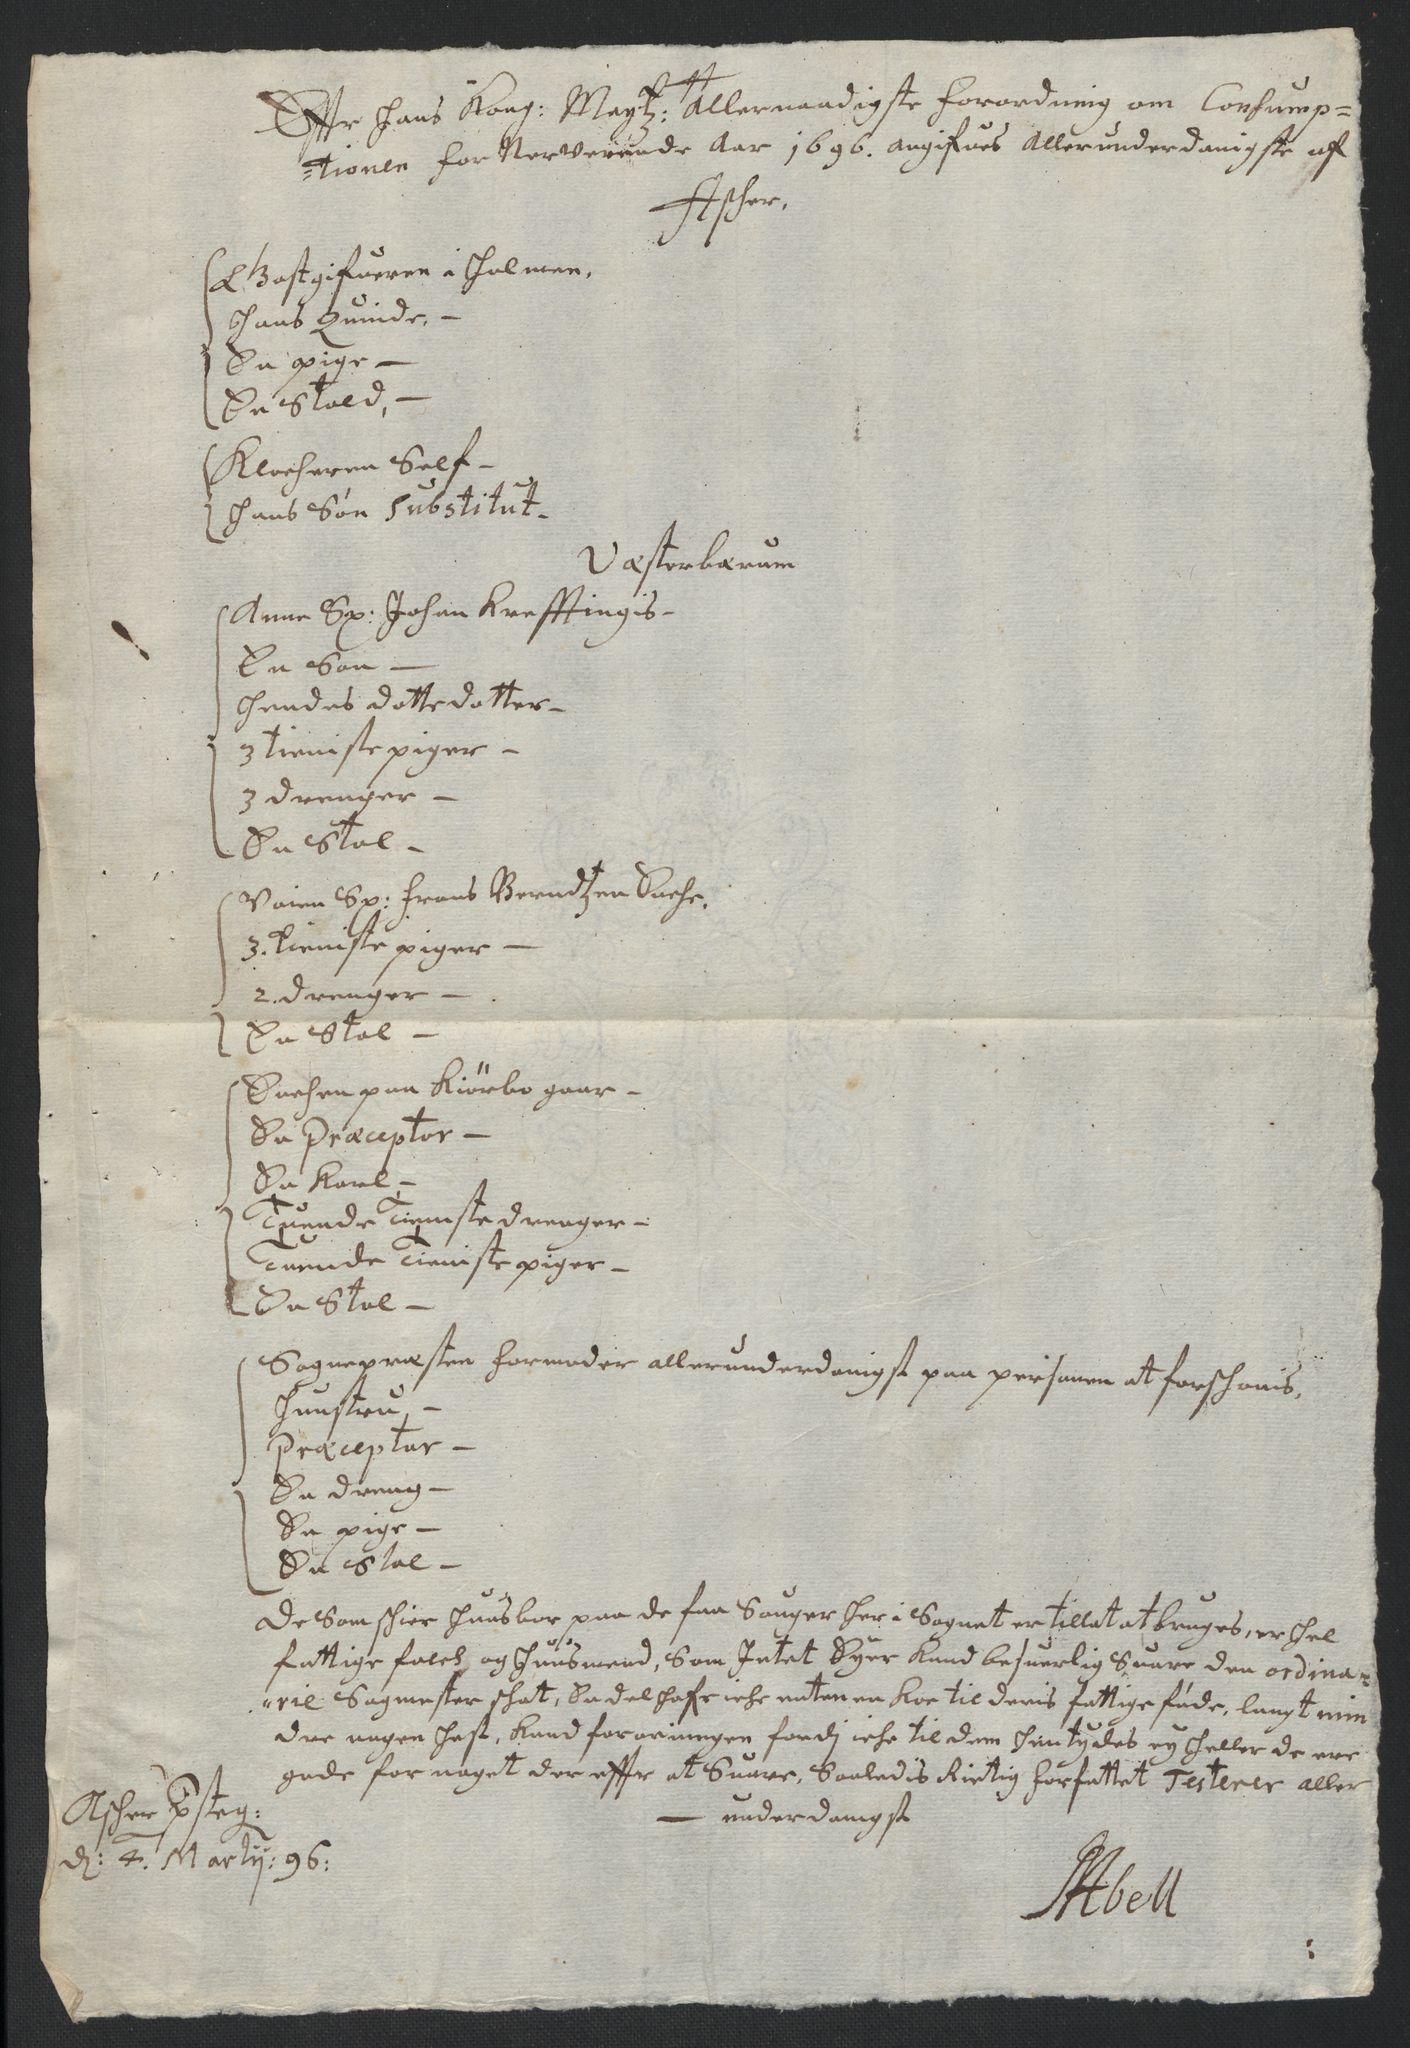 Effter hans Kong: Maytz: Allernaadigste forordning om Consump=
=tionen for Nerverende Aar 1696. angifves Allerunderdanigste af
Ascher.
Gastgifveren i Holmen,
Hans Quinde, —
En pige —
En Stald, —
Klocheren Self —
Hans Søn Substitut —
Vesterbærum
Anne Sx: Johan Kreffttingis —
En Søn —
Hendes dotte dotter —
3 tieniste piger —
3 drenger —
En Stal —
Sx: Frans Berndtzen Enche,
3. tieniste piger —
2. drenger —
En Stal —
Enchen paa Kiörbo gaar —
En Præceptor —
En Karl —
Tuende Tieniste drenger —
Tuende Tieniste piger —
En Stal —
Sognepræsten formoder allerunderdanigst paa personen at forschonis,
Hunstru, —
Præceptor —
En dreng —
En pige —
En Stal —
De Som schier Huusbor paa de faa Sauger her i Sognet er tillat at bruges, er hel
fattige folch og Huusmend, Som Intet Eyer Kand besuerlig Suare den ordina=
=rie Sagmester schat, En del hafr iche uten en Koe til deris fattige føde, langt min
dre nogen Hest, Kand foraringen fordj iche til dem hentydes ey heller de ere
gode for noget der effter at Suare, Saaledis Rictig forfattet Testerer aller
— underdanigst
Ascher Psteg:
d: 4. Martij: 96:
Abell